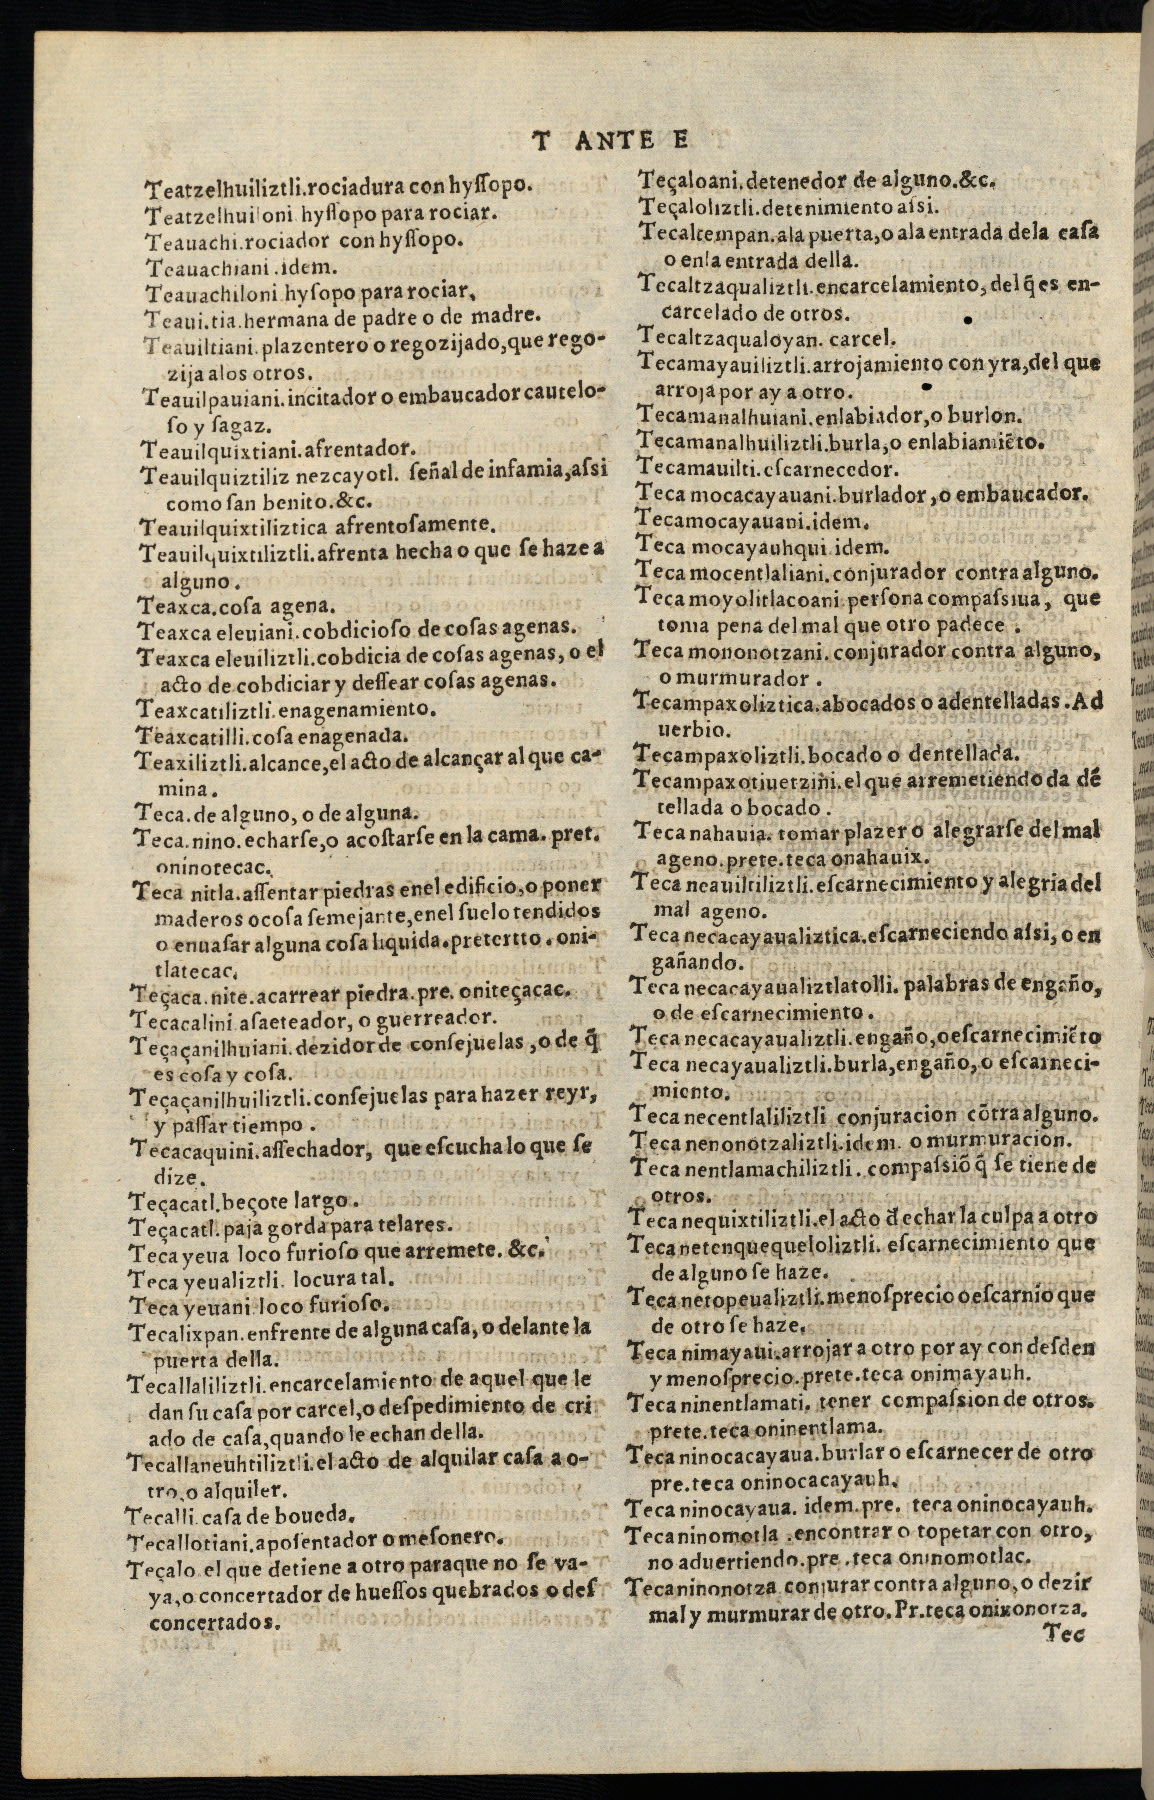 T ANTE E
Teatzelhuiliztli.rociadura con hyſſopo.
Teatzelhuiloni hyſſopo para rociar.
Teauachi.rociador con hyſſopo.
Teauachiani.idem.
Teauachiloni hyſopo para rociar.
Teaui.tia.hermana de padre o de madre.
Teauiltiani.plazentero o regozijado,que rego-
zija alos otros.
Teauilpauiani.incitador o embaucador cautelo-
ſo y ſagaz.
Teauilquixtiani.afrentador.
Teauilquiztiliz nezcayotl. ſeñal de infamia,aſsi
como ſan benito.&c.
Teauilquixtiliztica afrentoſamente.
Teauilquixtiliztli.afrenta hecha o que ſe haze a
alguno.
Teaxca.coſa agena.
Teaxca eleuiani.cobdicioſo de coſas agenas.
Teaxca eleuiliztli.cobdicia de coſas agenas, o el
acto de cobdiciar y deſſear coſas agenas.
Teaxcatiliztli.enagenamiento.
Teaxcatilli.coſa enagenada.
Teaxiliztli.alcance,el acto de alcançar al que ca-
mina.
Teca.de alguno, o de alguna.
Teca.nino.echarſe,o acoſtarſe en la cama. pret.
oninotecac.
Teca nitla.aſſentar piedras enel edificio,o poner
maderos o coſa ſemejante,enel ſuelo tendidos
o enuaſar alguna coſa liquida.pretertto.oni-
tlatecac.
Teçaca.nite.acarrear piedra.pre. oniteçacac.
Tecacalini aſaeteador, o guerreador.
Teçaçanilhuiani.dezidor de conſejuelas ,o de q̃
es coſa y coſa.
Teçaçanilhuiliztli.conſejuelas para hazer reyr,
y paſſar tiempo .
Tecacaquini.aſſechador, que eſcucha lo que ſe
dize.
Teçacatl.beçote largo.
Teçacatl.paja gorda para telares.
Teca yeua loco furioſo que arremete. &c.
Teca yeualiztli. locura tal.
Teca yeuani loco furioſo.
Tecalixpan.enfrente de alguna caſa,o delante la
puerta della.
Tecallaliliztli.encarcelamiento de aquel que le
dan ſu caſa por carcel,o deſpedimiento de cri
ado de caſa,quando le echan della.
Tecallaneuhtiliztli.el acto de alquilar caſa a o-
tro,o alquiler.
Tecalli.caſa de boueda.
Tecallotiani.apoſentador o meſonero.
Teçalo el que detiene a otro paraque no ſe va-
ya,o concertador de hueſſos quebrados o deſ
concertados.
Teçaloani.detenedor de alguno.&c.
Teçaloliztli.detenimiento aſsi.
Tecaltempan.ala puerta,o ala entrada dela caſa
o enla entrada della.
Tecaltzaqualiztli.encarcelamiento, del q̃ es en-
carcelado de otros.
Tecaltzaqualoyan. carcel.
Tecamayauiliztli.arrojamiento con yra,del que
arroja por ay a otro.
Tecamanalhuiani.enlabiador,o burlon.
Tecamanalhuiliztli.burla,o enlabiamiẽto.
Tecamauilti.eſcarnecedor.
Teca mocacayauani.burlador,o embaucador.
Tecamocayauani.idem.
Teca mocayauhqui idem.
Teca mocentlaliani.conjurador contra alguno.
Teca moyolitlacoani perſona compaſsiua, que
toma pena del mal que otro padece .
Teca mononotzani.conjurador contra alguno,
o murmurador .
Tecampaxoliztica.abocados o adentelladas.Ad
uerbio.
Tecampaxoliztli.bocado o dentellada.
Tecampaxotiuetzini.el que arremetiendo da dẽ
tellada o bocado.
Teca nahauia. tomar plazer o alegrarſe del mal
ageno.prete.teca onahauix.
Teca neauiltiliztli.eſcarnecimiento y alegria del
mal ageno.
Teca necacayaualiztica.eſcarneciendo aſsi, o en
gañando.
Teca necacayaualiztlatolli. palabras de engaño,
o de eſcarnecimiento.
Teca necacayaualiztli.engaño,o eſcarnecimiẽto
Teca necayaualiztli.burla,engaño, o eſcarneci-
miento.
Teca necentlaliliztli conjuracion cõtra alguno.
Teca nenonotzaliztli.idem. o murmuracion.
Teca nentlamachiliztli. compaſsiõ q̃ ſe tiene de
otros.
Teca nequixtiliztli.el acto d̃ echar la culpa a otro
Teca netenquequeloliztli. eſcarnecimiento que
de alguno ſe haze.
Teca netopeualiztli.menoſprecio o eſcarnio que
de otro ſe haze.
Teca nimayaui.arrojar a otro por ay con deſden
y menoſprecio.prete.teca onimayauh.
Teca ninentlamati. tener compaſsion de otros.
prete.teca oninentlama.
Teca ninocacayaua.burlar o eſcarnecer de otro
pre.teca oninocacayauh.
Teca ninocayaua. idem.pre. teca oninocayauh.
Teca ninomotla .encontrar o topetar con otro,
no aduertiendo.pre.teca oninomotlac.
Teca ninonotza conjurar contra alguno, o dezir
mal y murmurar de otro.Pr.teca oninonotza.
Tec